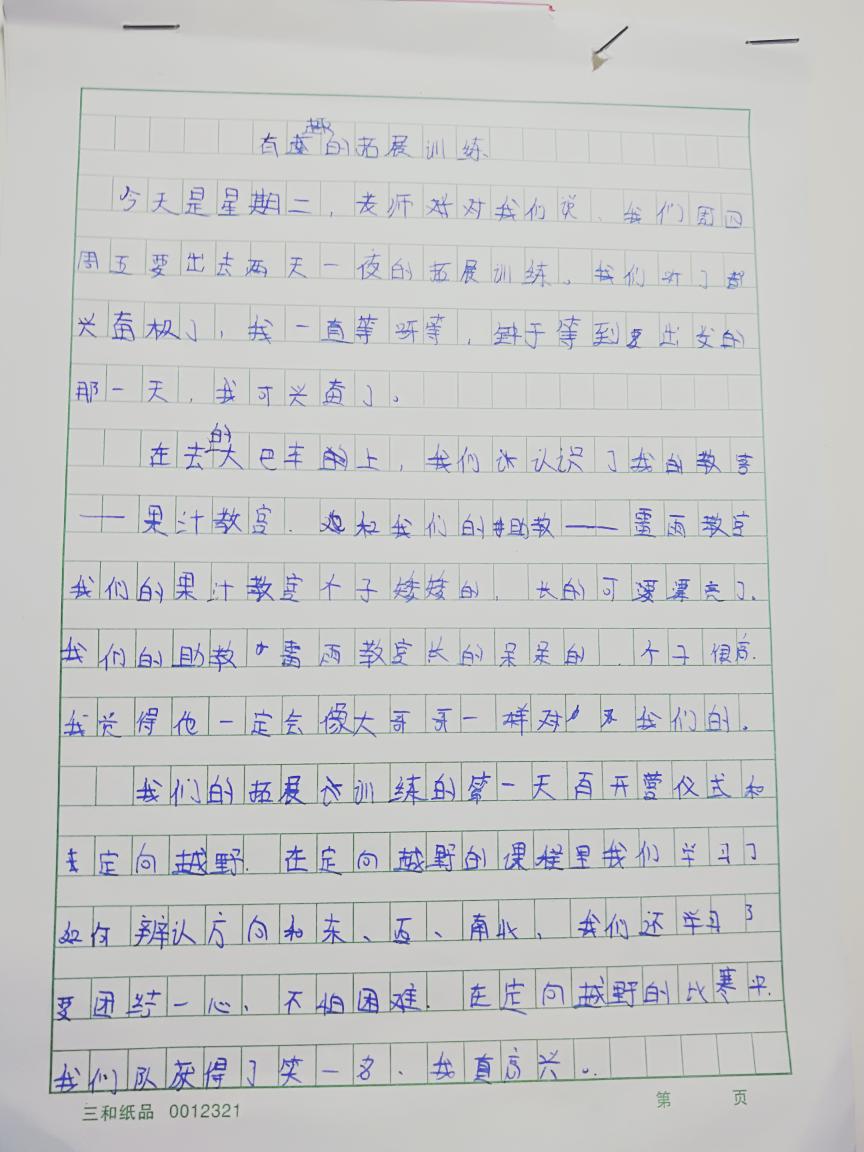 有趣的拓展训练
今天是星期二，老师对对我们说、我们周四
周五要出去两天一夜的拓展训练。我们听了都
兴奋极了，我一直等呀等，终于等到要出发的
那一天，我可兴奋了。
在去的大巴车上，我们认识了我的教官
——果汁教官.和我们的助教——雷雨教官
我们的果汁教官个子矮矮的，长的可漂亮了。
我们的助教雷雨教官长的呆呆的，个子很高.
我觉得他一定会像大哥哥一样对我们的。
我们的拓展训练的第一天有开营仪式和
定向越野.在定向越野的课程里我们学习了
如何辨认方向和东、西、南北、我们还学习了
要团结一心、不怕困难.在定向越野的比赛中.
我们队获得了第一名、我真高兴。
三和纸品 0012321
第 页